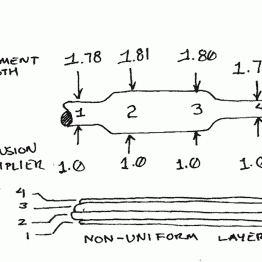 EMENT 1.78 1.81 1.80 1.7
TH
1 2 3 4
USION
PLIER 1.0 1.0 1.0 1.0
4
3
2
1 NON-UNIFORM LAYER